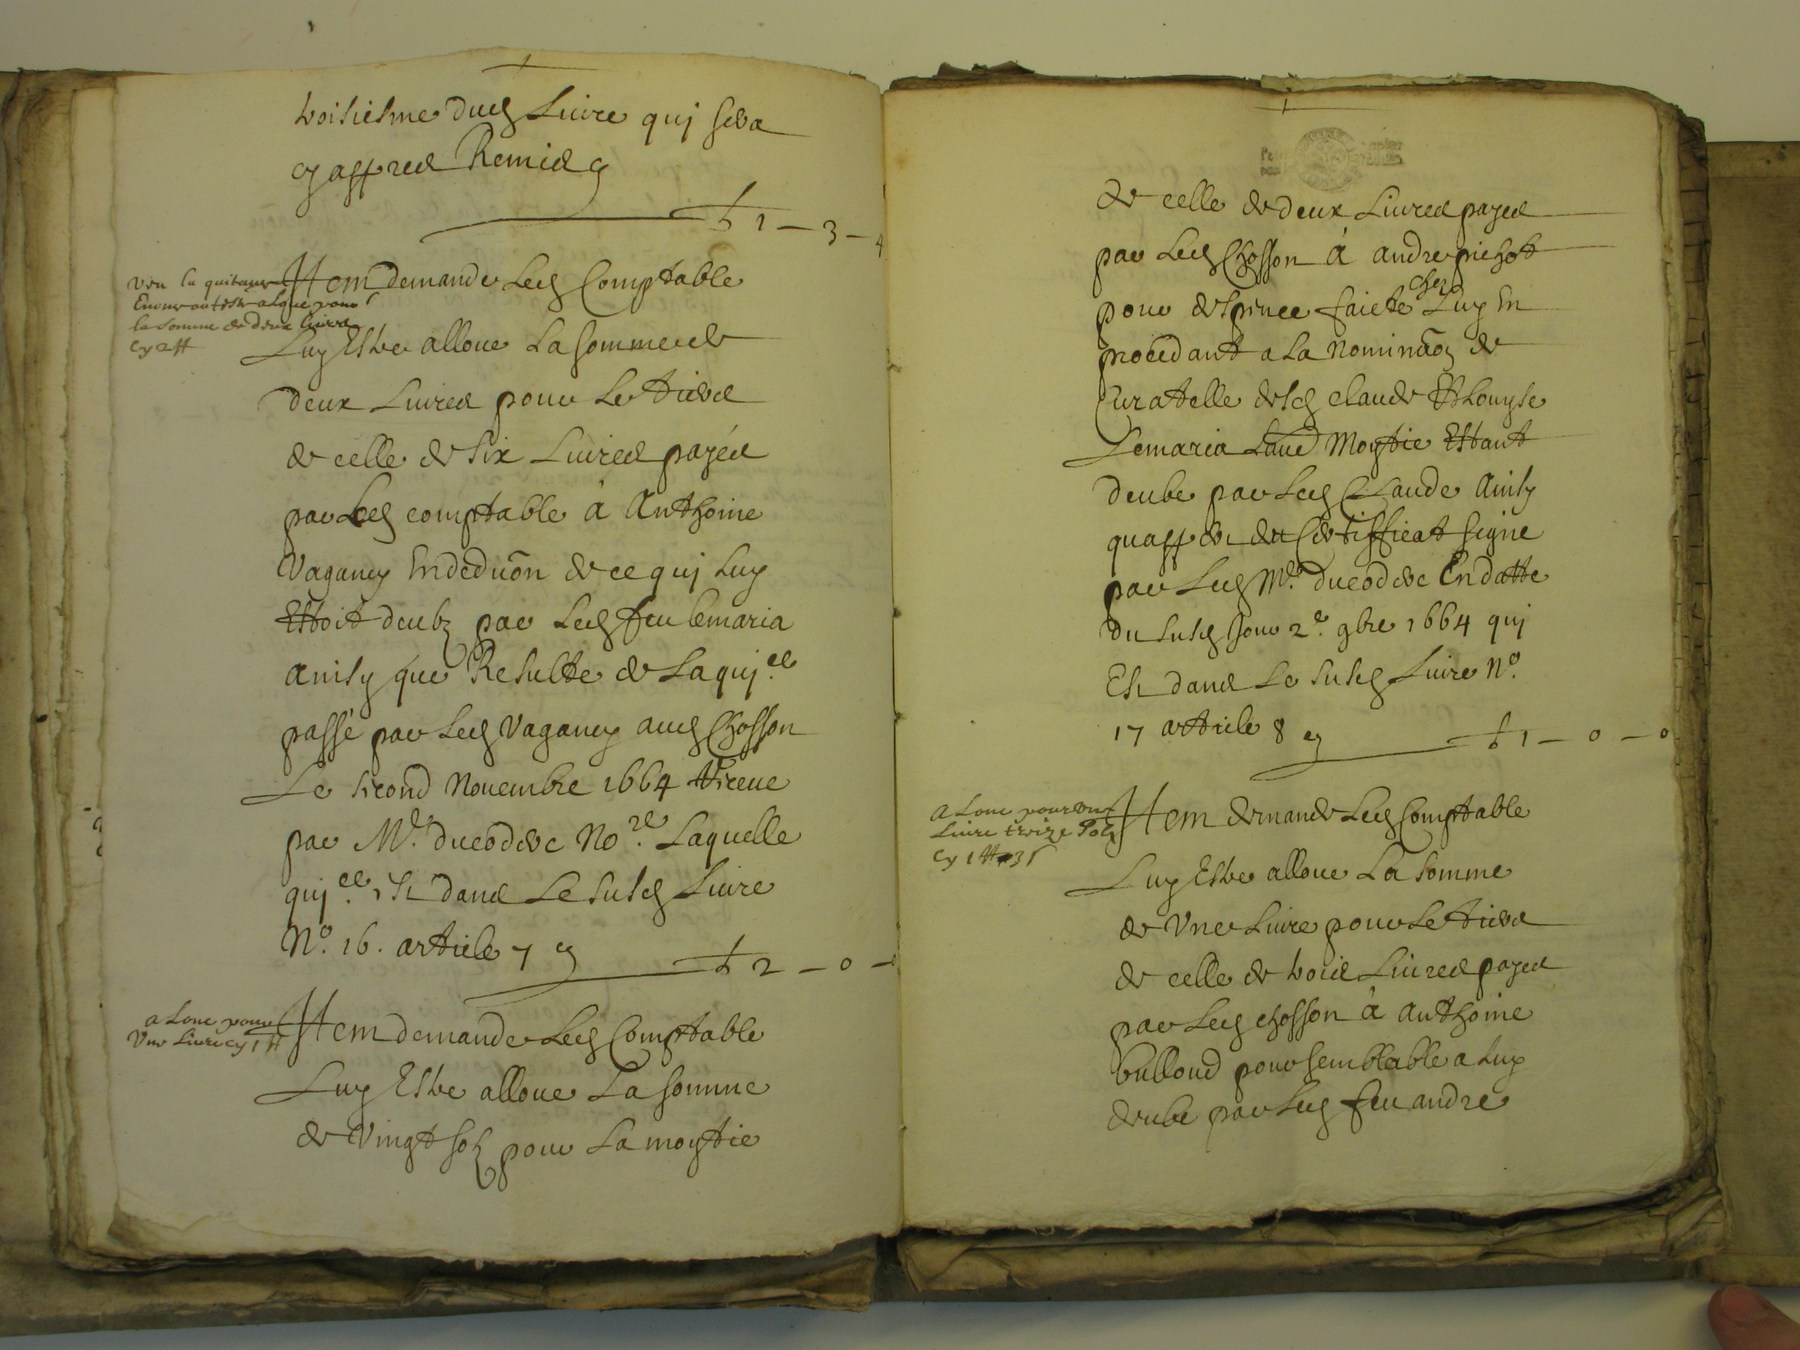 troisiesme dud Livre quj sera
cy appres Remis cy
₶ 1 — 3 — 4
Veu la quitance
la somme de deux livres
cy 2 ₶
Item demande Led Comptable
Luy Estre alloue La somme de
deux Livres pour Le tiers
de celle de six Livres payés
par Led comptable à Anthoine
Vaganey En deduon de ce quj Luy
Estoit deub par Led feu Lemaria
ainsy que Resulte de La quj.ce
passé par Led Vaganey aud Chosson
Le second Novembre 1664 Receue
par Me. ducoderc No.re Laquelle
quj.ce est dans Le susd Livre
No. 16. article 7 cy
₶ 2 — 0 —
aloue pour
Une Livre cy 1 ₶
Item demande Led Comptable
Luy Estre alloue La somme
de Vingt solz pour La moytie
de celle de deux Livres payes
par Led Chosson à andre pichot
pour despence faicte chez Luy En
procedant a La Nominaon de
Curatelle desd claude Et Louyse
Lemaria Laud Moytie Estant
deube par Led Claude Ainsy
quapper du Certifficat signe
par Led Me. ducoderc En datte
du susd Jour 2e. 9bre 1664 quj
Est dans Le susd Livre No.
17 article 8 cy
₶ 1 — 0 — 0
aloue pour une
Livre treize solz
cy 1 ₶ 13 s
Item demande Led Comptable
Luy Estre alloue La somme
de Une Livre pour Le tiers
de celle de trois Livres payes
par Led chosson à Anthoine
bulloud pour semblable a Luy
deube par Led feu andre